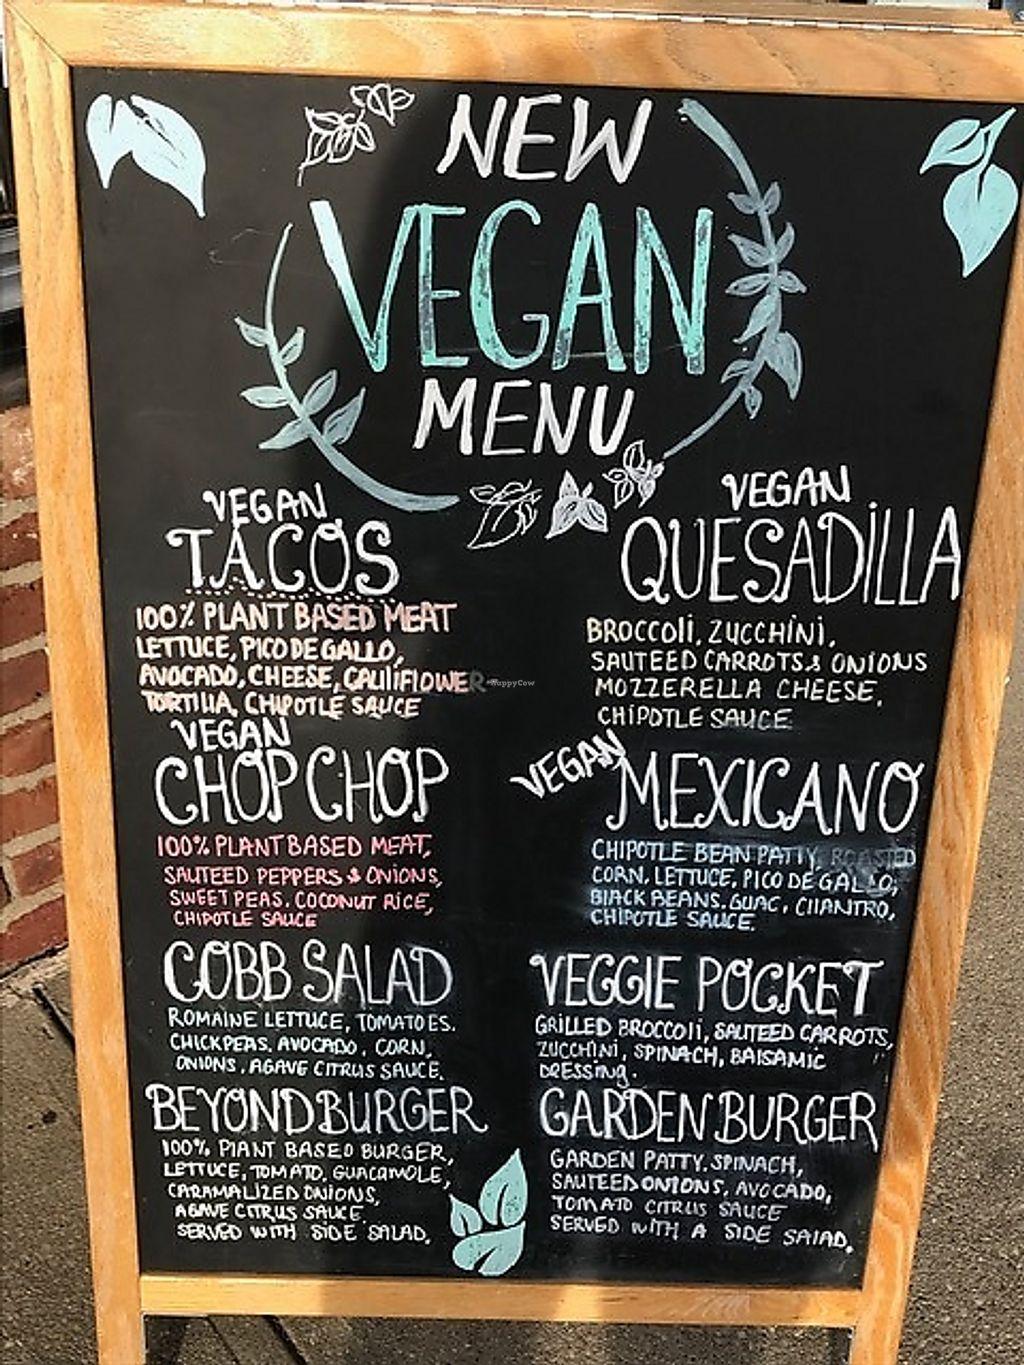 NEW
VEGAN
MENU
VEGAN
TACOS
100% PLANT BASED MEAT
LETTUCE, PICO DE GALLO,
AVOCADO, CHEESE, CAULIFLOWER
TORTILLA, CHIPOTLE SAUCE
VEGAN
CHOP CHOP
100% PLANT BASED MEAT,
SAUTEED PEPPERS & ONIONS,
SWEET PEAS, COCONUT RICE,
CHIPOTLE SAUCE
COBB SALAD
ROMAINE LETTUCE, TOMATOES.
CHICKPEAS, AVOCADO, CORN,
ONIONS, AGAVE CITRUS SAUCE.
BEYOND BURGER
100% PLANT BASED BURGER,
LETTUCE, TOMATO, GUACAMOLE,
CARAMALIZED ONIONS,
AGAVE CITRUS SAUCE
SERVED WITH SIDE SALAD.
VEGAN
QUESADILLA
BROCCOLI, ZUCCHINI,
SAUTEED CARROTS & ONIONS
MOZZERELLA CHEESE,
CHIPOTLE SAUCE
VEGAN MEXICANO
CHIPOTLE BEAN PATTY, ROASTED
CORN, LETTUCE, PICO DE GALLO,
BLACK BEANS, GUAC, CILANTRO,
CHIPOTLE SAUCE.
VEGGIE POCKET
GRILLED BROCCOLI, SAUTEED CARROTS,
ZUCCHINI, SPINACH, BALSAMIC
DRESSING.
GARDEN BURGER
GARDEN PATTY, SPINACH,
SAUTEED ONIONS, AVOCADO,
TOMATO CITRUS SAUCE
SERVED WITH A SIDE SALAD.
HappyCow